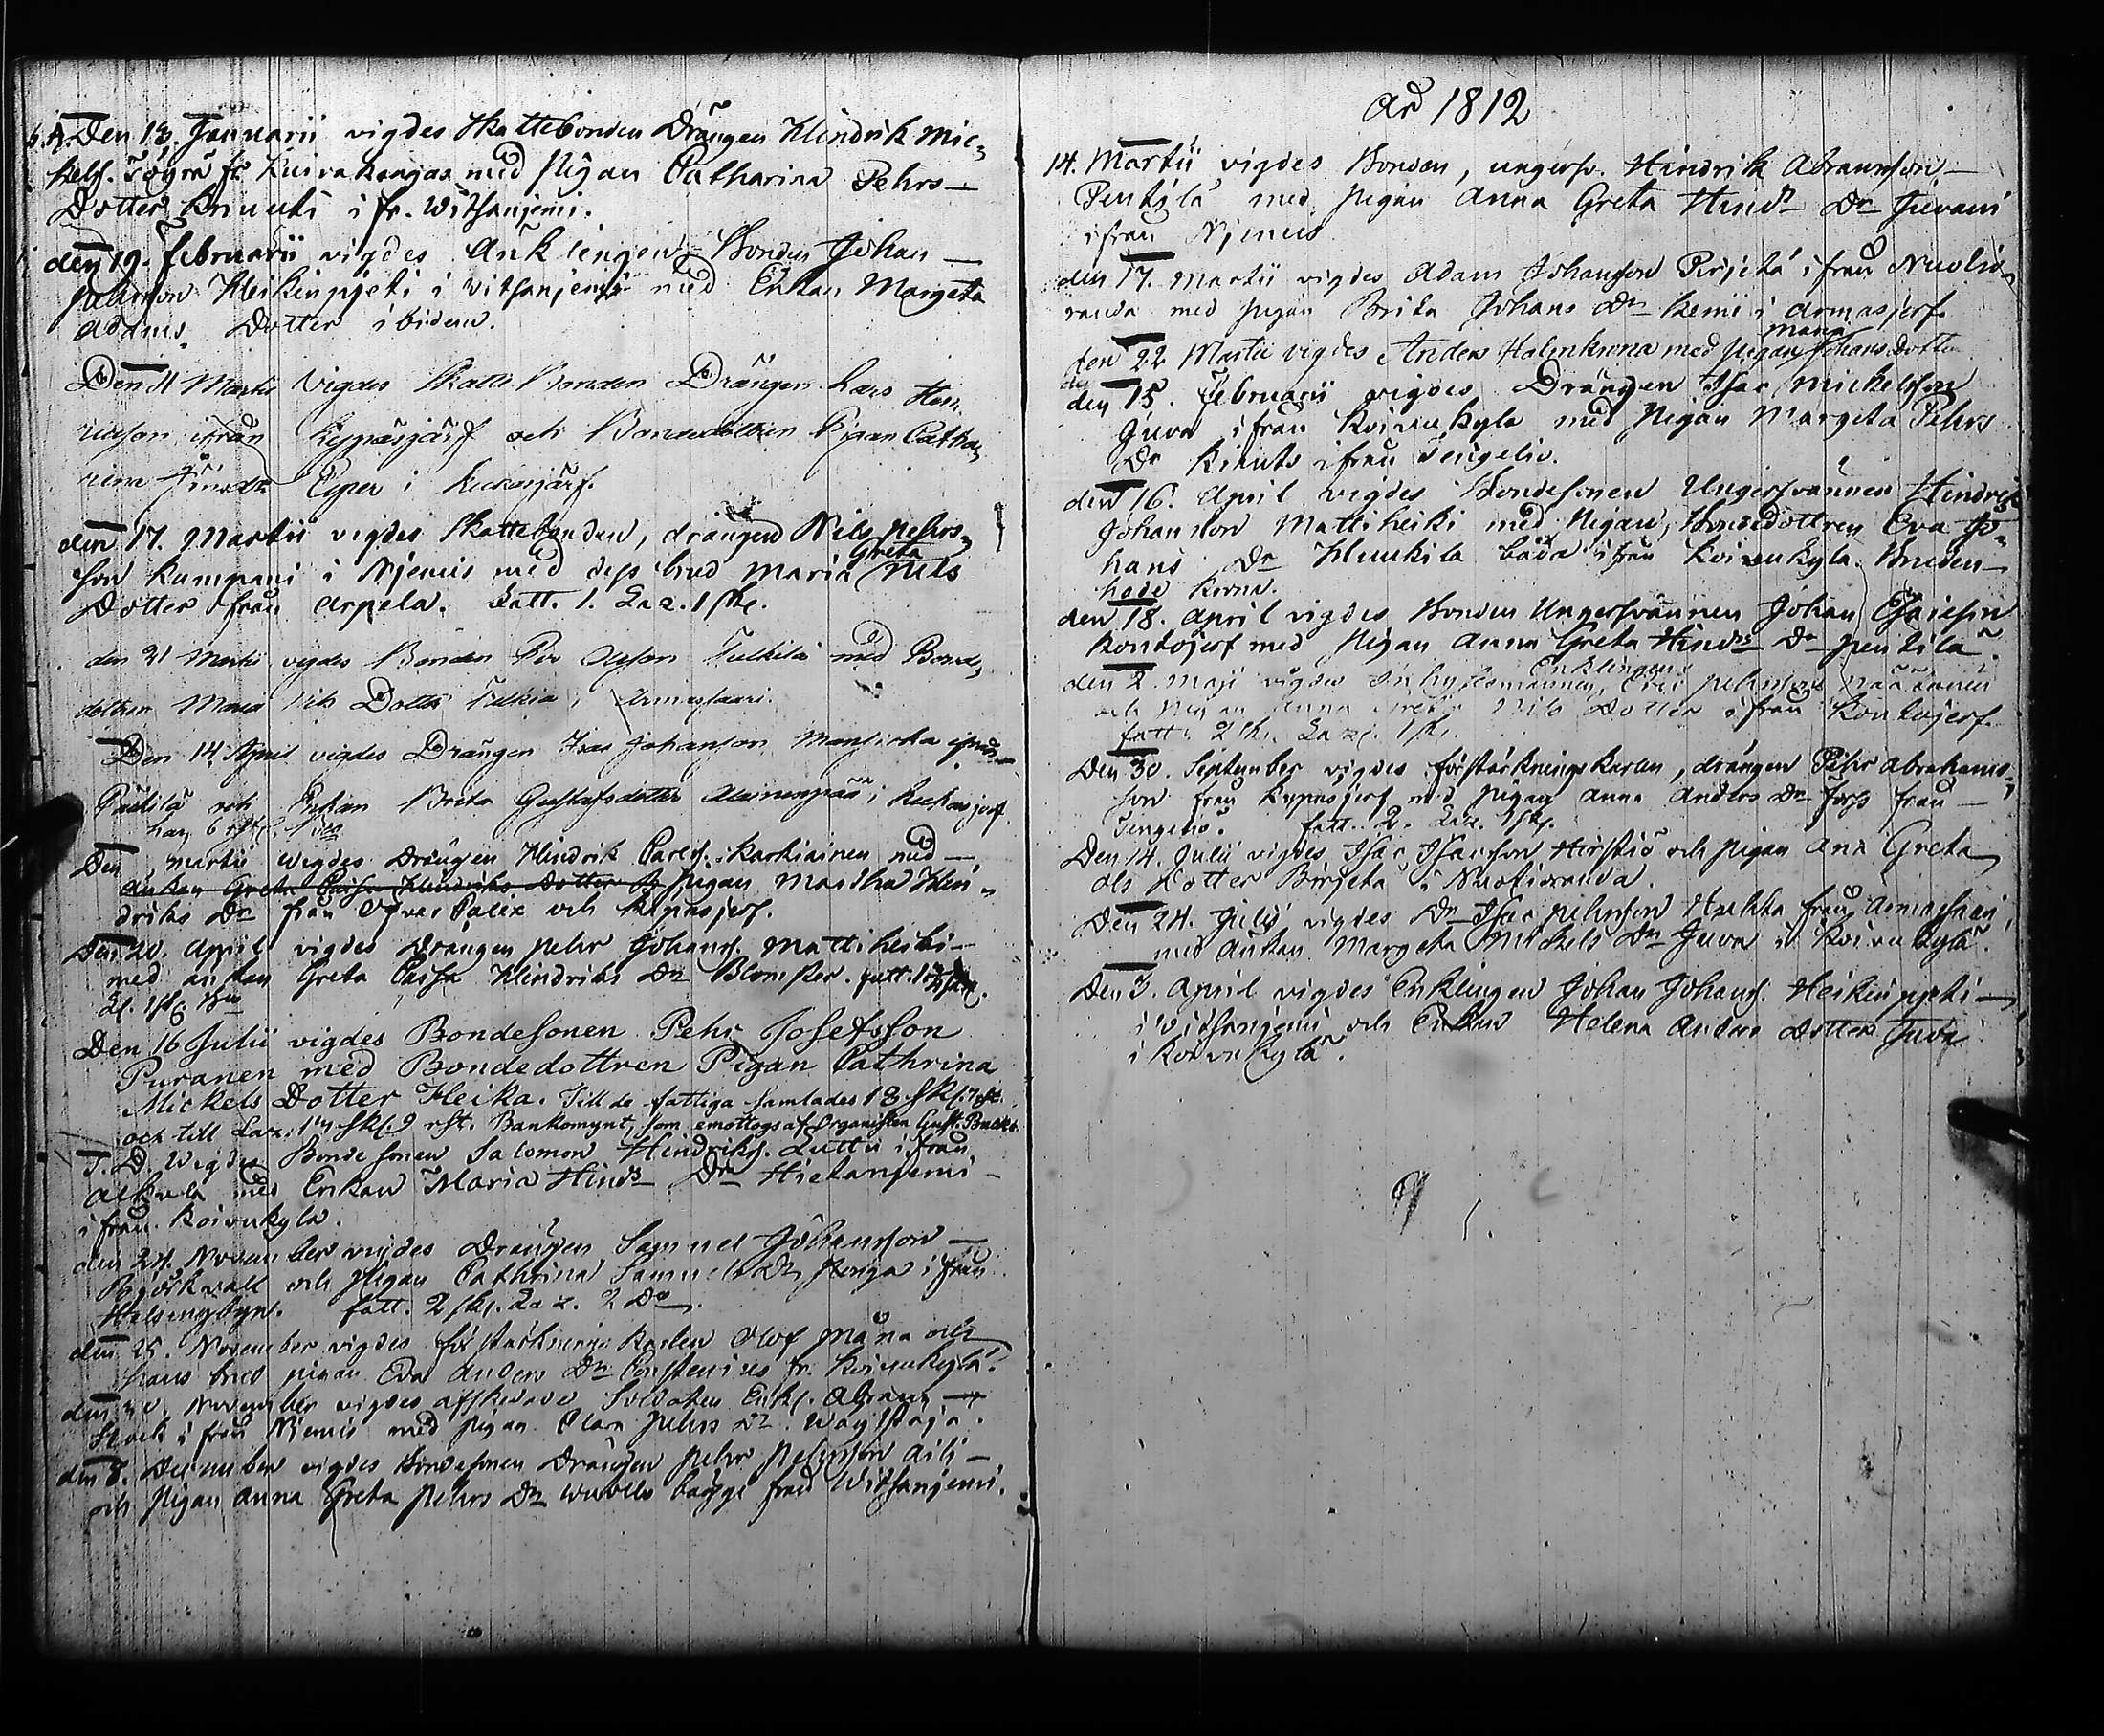 Den 13. Januarii vigdes Skattebonden Drängen Hindrik Mic-
kelss. Töyrä fr. Kuivakangas med Pigan Catharina Pehrs
Dotter Knuuti i fr. Witsanjemi.
den 19. Februarii vigdes Änklingen Bonden Johan
Pehrsson Heikinpjeti i Vitsanjemi med Enkan Margeta
Adams Dotter ibidem.
Den 11 Martii Vigdes Skatte Bonden Drängen Lars Hen
ricson ifrån och Bondedottren Pigan Catha
rina i
den 17. Martii vigdes Skattebonden, drängen Nils Pehrs-
Greta
son Kumpani i Njemis med dess brud Maria Nils
Dotter ifrån Arpela. Fatt. 1. Laz. 1 sk.
den 21 Martii vigdes Bonden Per Olsson med Bonde
dottren Maria Dotter i Armassaari.
Den 14 April vigdes Drängen Isac Johanson ifrån
Päckilä och Enkan Brita Gustafsdotter i
Den Martii vigdes Drängen Hindrik Carlss. Karkiainen med
Änkan Greta Caisa Hindriks Dotter Pigan Martha Hin-
driks Dr från Öfver Calix och
Den 20. April vigdes Drängen Pehr Johanss. Mattiheiki
med änkan Greta Caisa Hindriks Dr Blomster. fatt.
Den 16 Julii vigdes Bondesonen Pehr Josefsson
Puranen med Bondedottren Pigan Cathrina
Mickels Dotter Heika. Till de fattiga samlades 18 Sk. 7 rst.
och till Laz. 17 sk. 9 rst. Bankomynt, som emottogs af Organisten Gust.
S. D. Vigdes Bondesonen Salomon Hindrikss. Luttu ifrån
Alkula med Enkan Maria Hinds Dr Hietanjemi
ifrån Koivukylä.
den 24. November vigdes Drängen Samuel Johansson
Björkvall och Pigan Cathrina Samuels Dr ifrån
Helsingbyn. fatt. 2 sk. Laz. 2 Do
den 25. November vigdes förstärknings Karlen Olof Måna och
hans brud pigan Eva Anders Dr Constenius fr. Koivukylä.
den November vigdes afskedade Soldaten Enkl. Abram
Stock ifrån Njemis med pigan Clara Pehrs Dr
den 8. December vigdes Bondesonen Drängen Pehr Pehrsson Aili
och Pigan Anna Greta Pehrs Dr bägge från Witsanjemi.
År 1812
14. Martii vigdes Bonden, ungersv. Hindrik Abramsson
Pentylä med Pigan Anna Greta Hinds Dr Juvani
ifrån Njemis
den 17. Martii vigdes Adam Johansson Pirjetä ifrån Nuolio-
randa med Pigan Brita Johans Dr Kemi i Armasjerf.
Maria
den 22 Martii vigdes Anders med Pigan Johans Dotter
den 15. Februarii vigdes Drängen Isac Mickelsson
Juva ifrån Koivukyla med Pigan Margeta Pehrs
Dr Knuts ifrån Tengeliö.
den 16. April vigdes Bondesonen Ungersvännen Hindrik
Johansson Mattiheiki med Pigan, Bondedottren Eva Jo-
hans Dr Hunkila båda ifrån Koivukyla. Bruden
hade krona.
den 18. April vigdes Bonden Ungersvännen Johan Esaiesson
Kontojerf med Pigan Anna Greta Hinds Dr Pentilä.
Enklingen
den 2. Maji vigdes Inhysesmannen, Pehrsson
och Pigan Anna Greta Nils Dotter ifrån Kontojerf.
fatt. 2 sk. Laz. 1 sk.
Den 30. September vigdes förstärknings karlen, drängen Pehr Abrahams-
son från med Pigan Anna Anders Dr Forss från
Tengeliö. fatt. 2. Laz. 1 sk.
Den 14. Julii vigdes Isac Isacsson Hirstiö och Pigan Ana Greta
Ols Dotter Birjeta i Nuolioranda.
Den 24. Julii vigdes Dr Isac Pehrsson från Armassari
med Änkan Margeta Mickels Dr Juva i Koivukylä.
Den 3. April vigdes Enklingen Johan Johanss. Heikinpjeti
i Vitsanjemi och Enkan Helena Anders Dotter Juva
i Koivukylä.